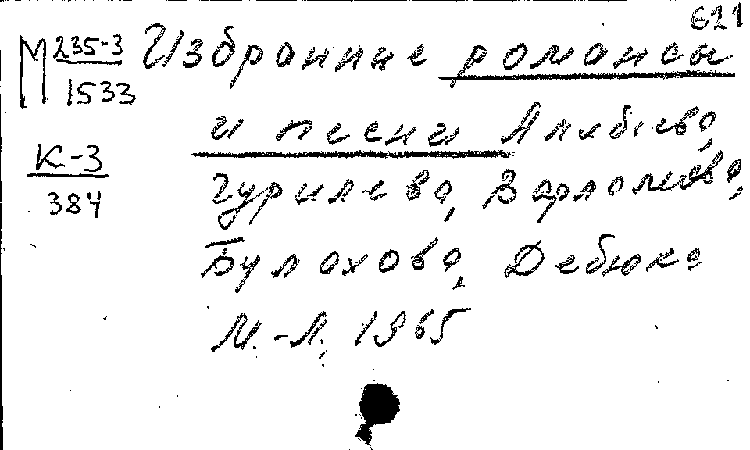 621
М 235-3 Избранные романсы
1533
и песни Алябьева,
К-3
Гурилева, Варламова,
384
Булахова, Дебюка
М.-Л. 1965